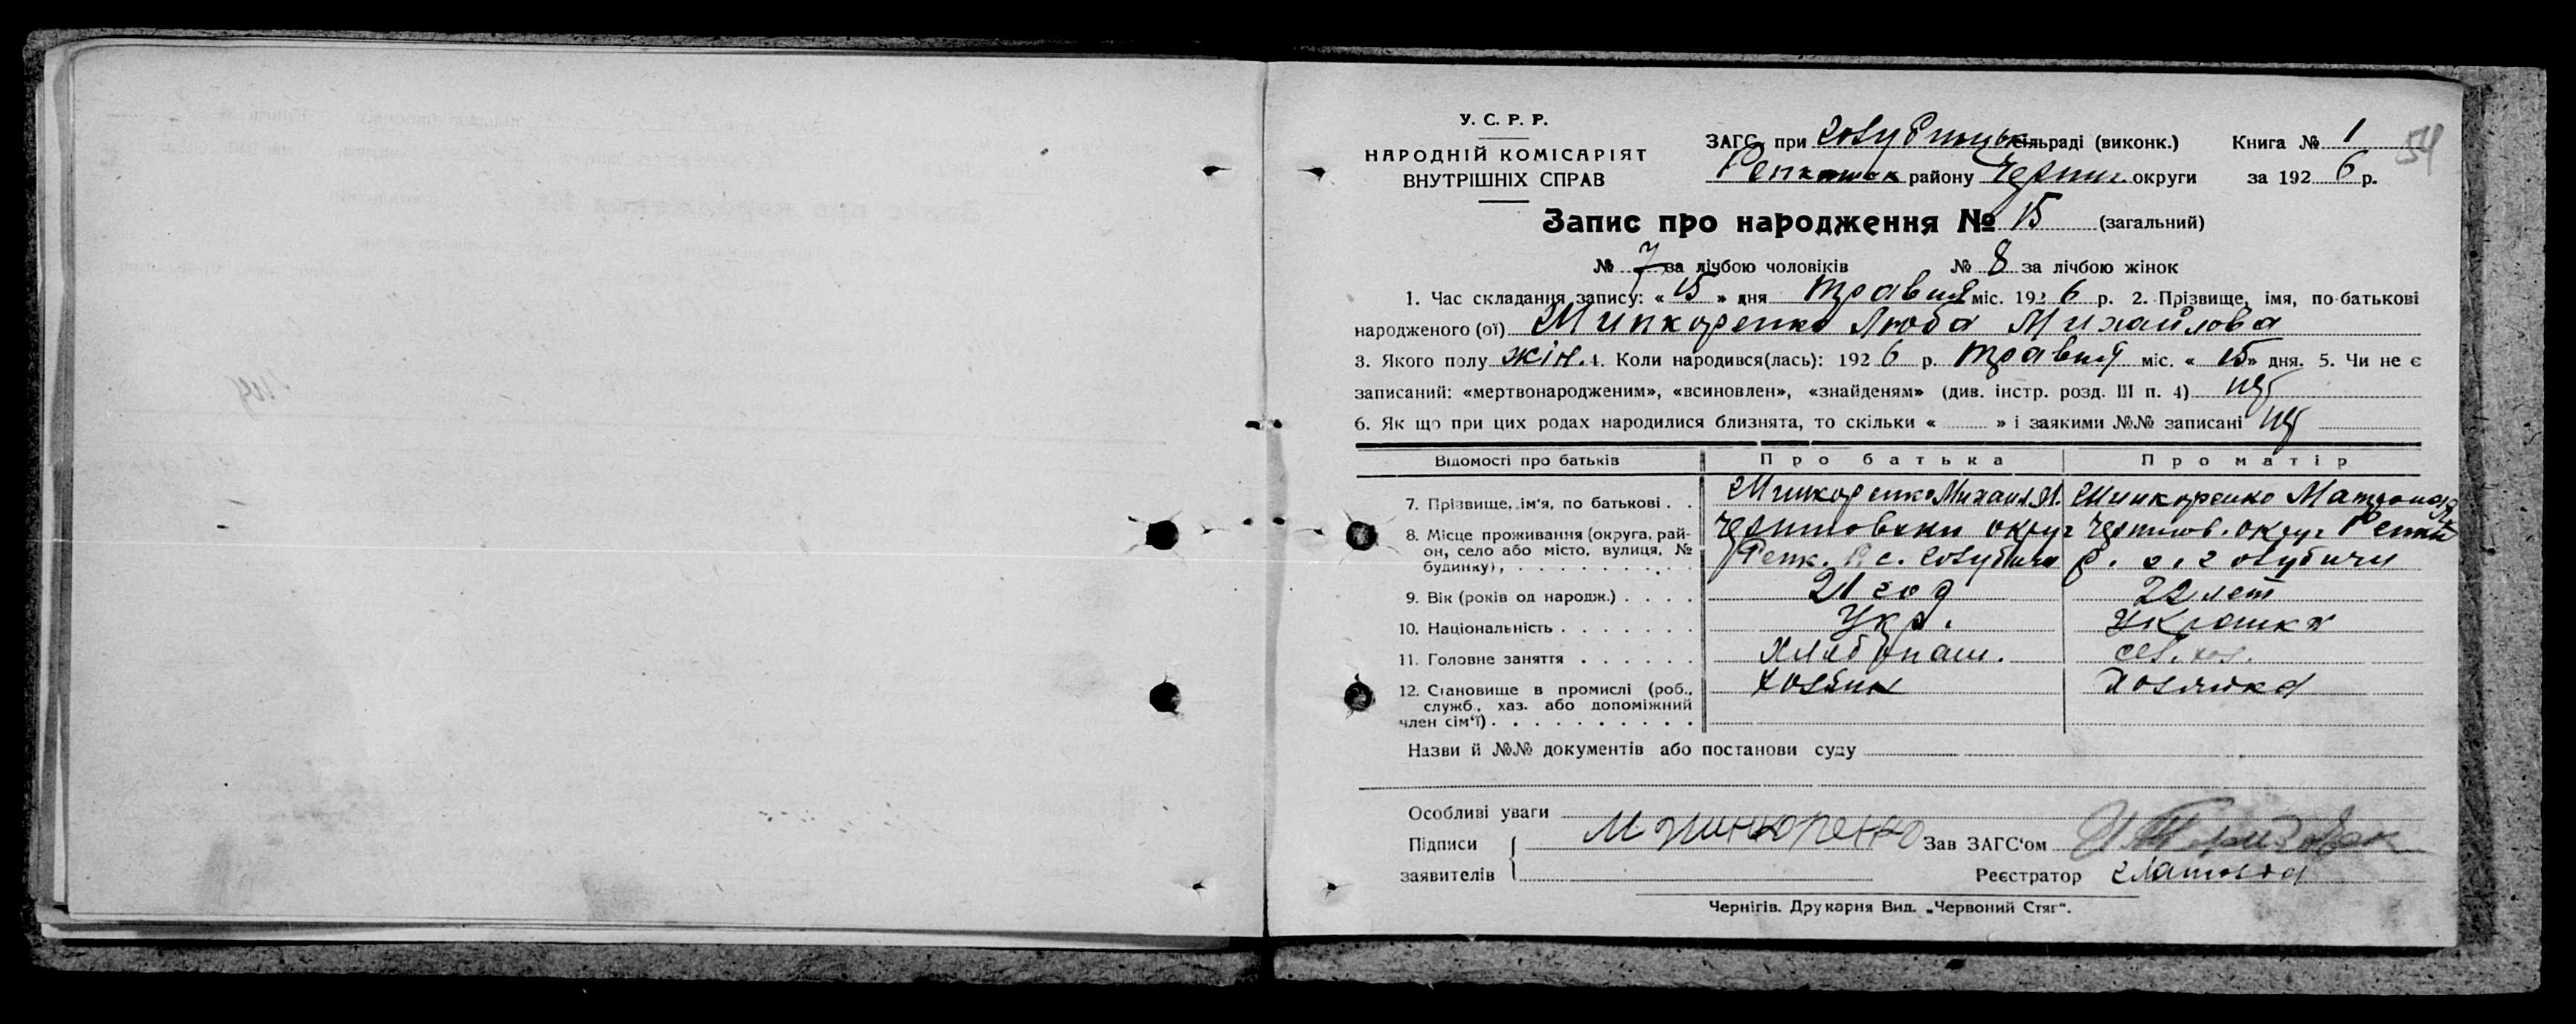 У. С. Р. Р.
НАРОДНІЙ КОМІСАРІЯТ
ВНУТРІШНІХ СПРАВ
ЗАГС при Голубицьк сільраді (виконк.) Книга № 1
54
району Черниг. округи за 1926 р.
Запис про народження № 15 (загальний)
№ 7 за лічбою чоловіків № 8 за лічбою жінок
1. Час складання запису: « 15 » дня травня міс. 1926 р. 2. Прізвище, імя, по-батькові
народженого (ої) Люба Михайлова
3. Якого полу жін. 4. Коли народився(лась): 1926 р. травня міс. « 15 » дня. 5. Чи не є
записаний: «мертвонародженим», «всиновлен», «знайденям» (див. інстр. розд. III п. 4) ні
6. Як що при цих родах народилися близнята, то скільки « » і заякими №№ записані ні
Відомості про батьків Про батька Про матір
7. Прізвище, ім'я, по батькові . . Михаил Матрона
8. Місце проживання (округа, рай-
он, село або місто, вулиця, №
будинку), . . . . . . . . . .
Черниговски округ Чернигов. округ Репки
Репк. Р. с. Голубичи р. с. Голубичи
9. Вік (років од народж.) . . . . 21 год 22 лет
10. Національність . . . . . . . Укр. Украинка
11. Головне заняття . . . . . . Хлябопаш. сел. хоз.
12. Становище в промислі (роб.,
служб., хаз. або допоміжний
член сім'ї) . . . . . . . . . .
Хозяин Хозяйка
Назви й №№ документів або постанови суду
Особливі уваги
Підписи
заявителів
Зав ЗАГС'ом
Реєстратор
Чернігів. Друкарня Вид. „Червоний Стяг“.